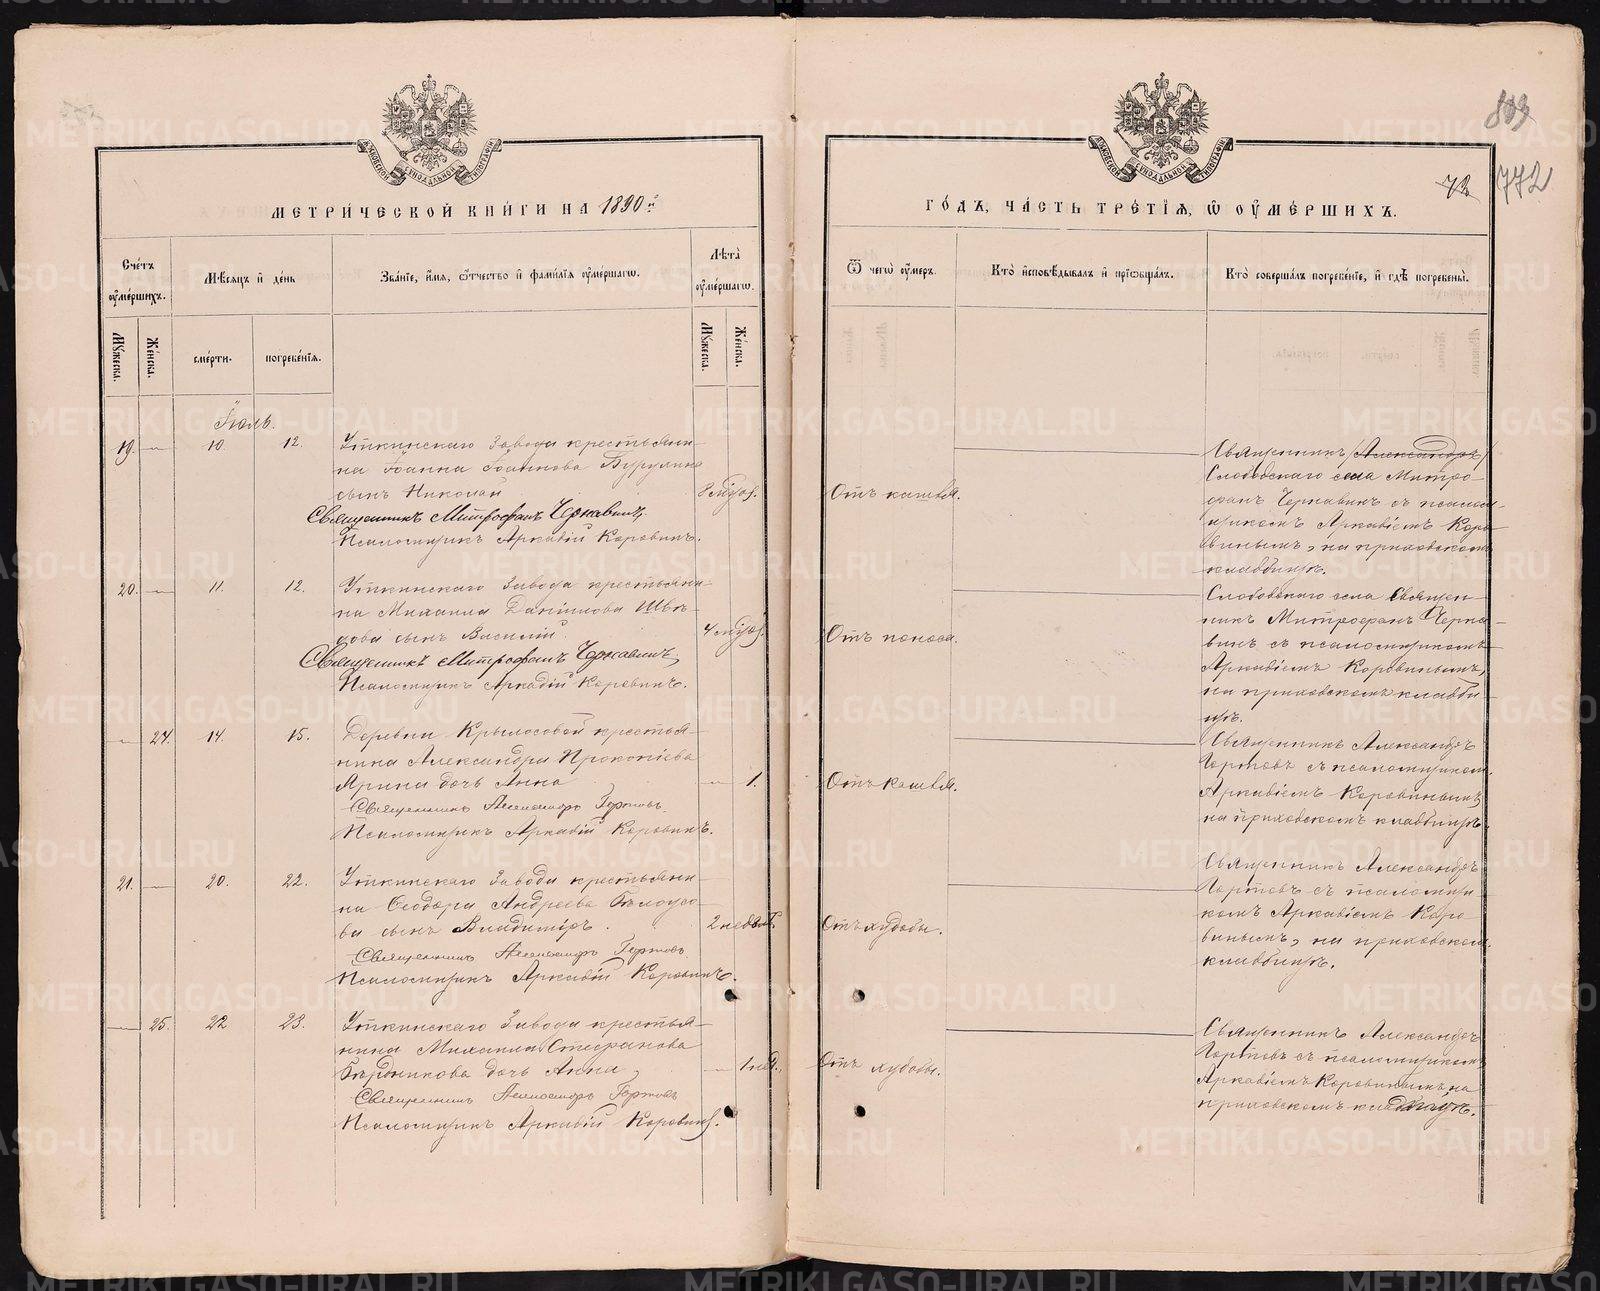 803
772
72
МЕТРИ́ЧЕСКОЙ КНИ́ГИ НА 1890 й
ГО́ДЪ, ЧА́СТЬ ТРЕ́ТІЯ, Ѿ ОУМЕ́РШИХЪ.
Сче́тъ оумершихъ.
Мѣсяцъ и де́нь
Зва́нїе, и́мя, о́тчество и фами́лїя оуме́ршагѡ.
Лѣта̀ оуме́ршагѡ.
Ѿ чегѡ̀ оу́меръ.
Кто̀ исповѣ́дывалъ и прїѡбща́лъ.
Кто̀ соверша́лъ погребе́нїе, и гдѣ̀ погребены̀.
Мужеска.
Же́нска.
сме́рти.
погребе́нїя.
Мужеска.
Же́нска.
Іюль.
19. — 10. 12. Уткинскаго Завода крестьяни-
на Іоанна Іоаннова Бурулина
сынъ Николай
Священникъ Митрофанъ Чернавинъ,
Псаломщикъ Аркадій Коровинъ.
Отъ кашля.
Священникъ /Александръ/
Слободскаго села Митро-
фанъ Чернавинъ съ псалом-
щикомъ Аркадіемъ Коро-
винымъ, на приходскомъ
кладбищѣ.
20. — 11. 12. Уткинскаго Завода крестьяни-
на Михаила Даніилова Шве-
цова сынъ Василій.
Священникъ Митрофанъ Чернавинъ,
Псаломщикъ Аркадій Коровинъ.
Отъ поноса.
Слободскаго села Священ-
никъ Митрофанъ Черна-
винъ съ псаломщикомъ
Аркадіемъ Коровинымъ,
на приходскомъ кладби-
щѣ.
— 24. 14. 15. Деревни Крылосовой крестья-
нина Александра Прокопіева
Ярина дочь Анна — 1.
Священникъ Александръ Гортовъ
Псаломщикъ Аркадій Коровинъ.
Отъ кашля.
Священникъ Александръ
Гортовъ съ псаломщикомъ
Аркадіемъ Коровинымъ,
на приходскомъ кладбищѣ.
21. — 20. 22. Уткинскаго Завода крестьяни-
на Ѳеодора Андреева Бѣлоусо-
ва сынъ Владиміръ.
Священникъ Александръ Гортовъ
Псаломщикъ Аркадій Коровинъ.
Отъ худобы.
Священникъ Александръ
Гортовъ съ псаломщи-
комъ Аркадіемъ Коро-
винымъ, на приходскомъ
кладбищѣ.
— 25. 22 23. Уткинскаго Завода крестья-
нина Михаила Стефанова
Бердникова дочь Анна, — 1 нед.
Священникъ Александръ Гортовъ
Псаломщикъ Аркадій Коровинъ.
Отъ худобы.
Священникъ Александръ
Гортовъ съ псаломщикомъ
Аркадіемъ Коровинымъ на
приходскомъ кладбищѣ.
METRIKI.GASO-URAL.RU